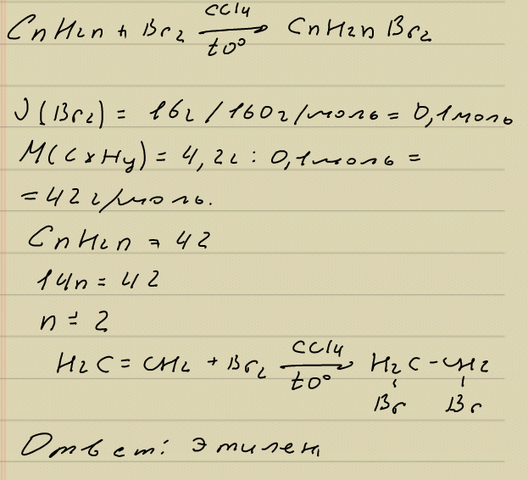 CnH2n + Br2 CCl4 / t0° → CnH2nBr2
ν(Br2) = 16г / 160г/моль = 0,1моль
M(CxHy) = 4,2г : 0,1моль =
= 42 г/моль.
CnH2n = 42
14n = 42
n = 2
H2C = CH2 + Br2 CCl4 / t0° → H2C - CH2
Br Br
Ответ: этилен